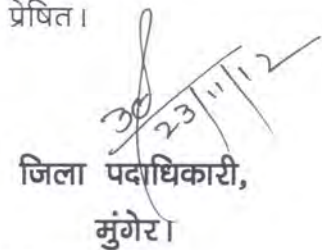 प्रेषित।
23/11/12
जिला पदाधिकारी,
मुंगेर।